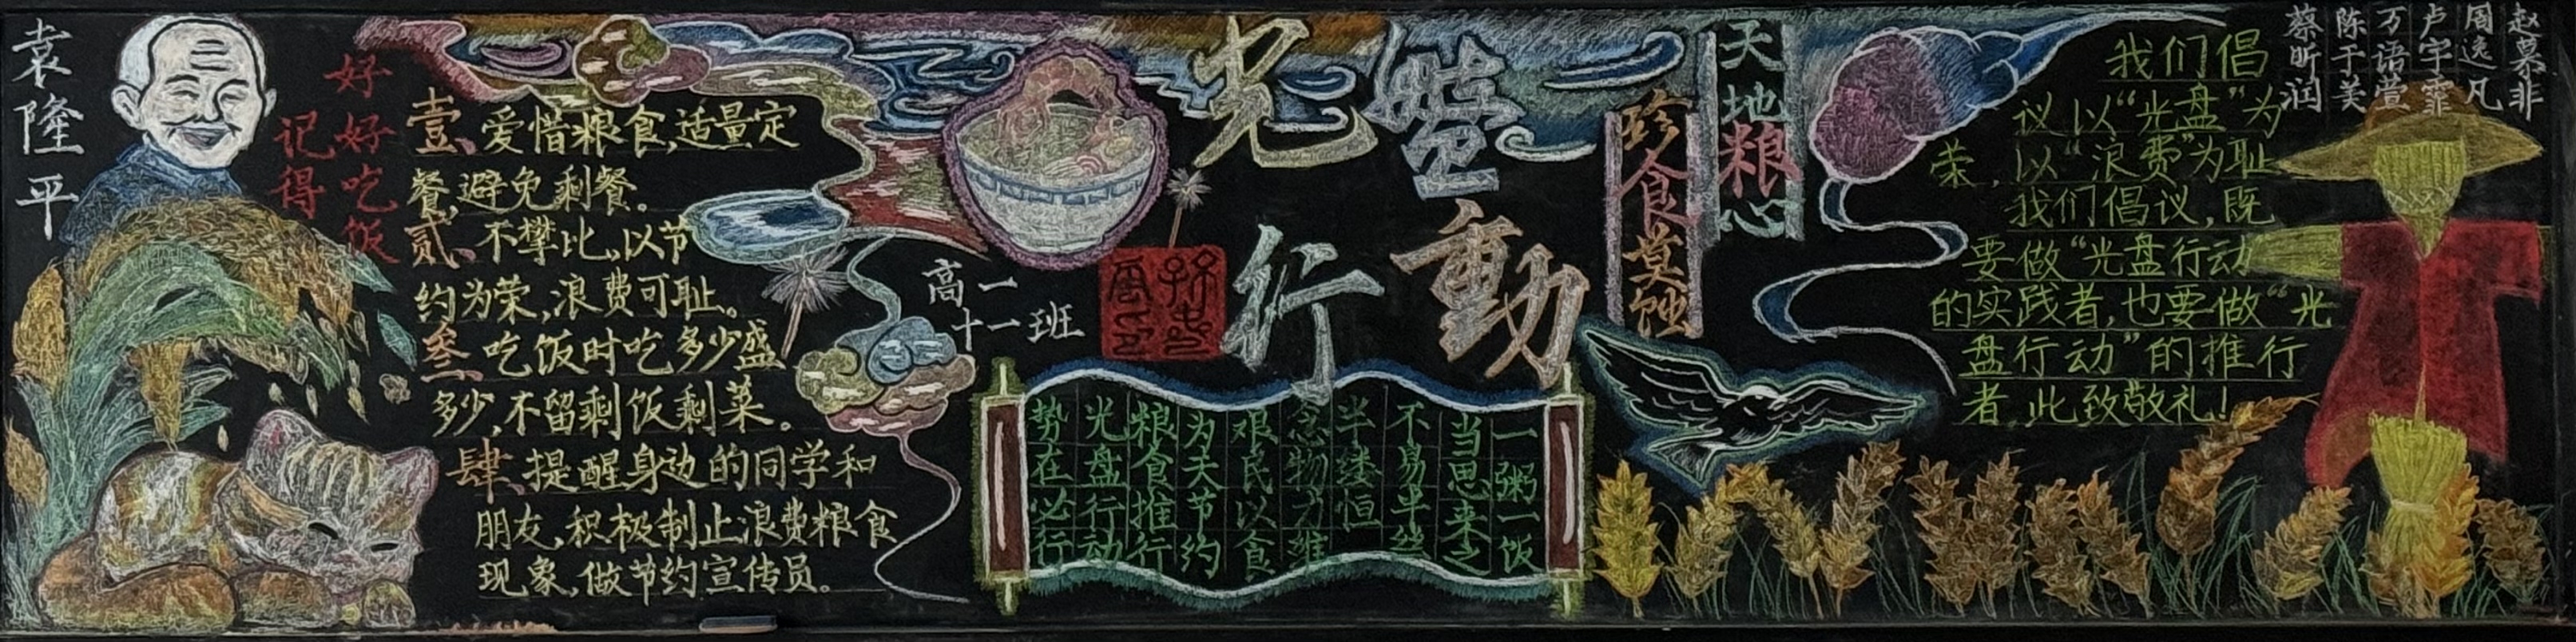 袁隆平
好好吃饭
记得
壹、爱惜粮食,适量定
餐,避免剩餐。
贰、不攀比,以节
约为荣,浪费可耻。
叁、吃饭时吃多少盛
多少,不留剩饭剩菜。
肆、提醒身边的同学和
朋友,积极制止浪费粮食
现象,做节约宣传员。
高一
十一班
光盤
行動
天地粮心
珍食莫蚀
一粥一饭
当思来之
不易半丝
半缕恒
念物力维
艰民以食
为天节约
粮食推行
光盘行动
势在必行
我们倡
议以“光盘”为
荣,以“浪费”为耻
我们倡议,既
要做“光盘行动
的实践者,也要做“光
盘行动”的推行
者,此致敬礼!
赵慕非
周逸凡
卢宇霏
万语萱
陈于美
蔡昕润